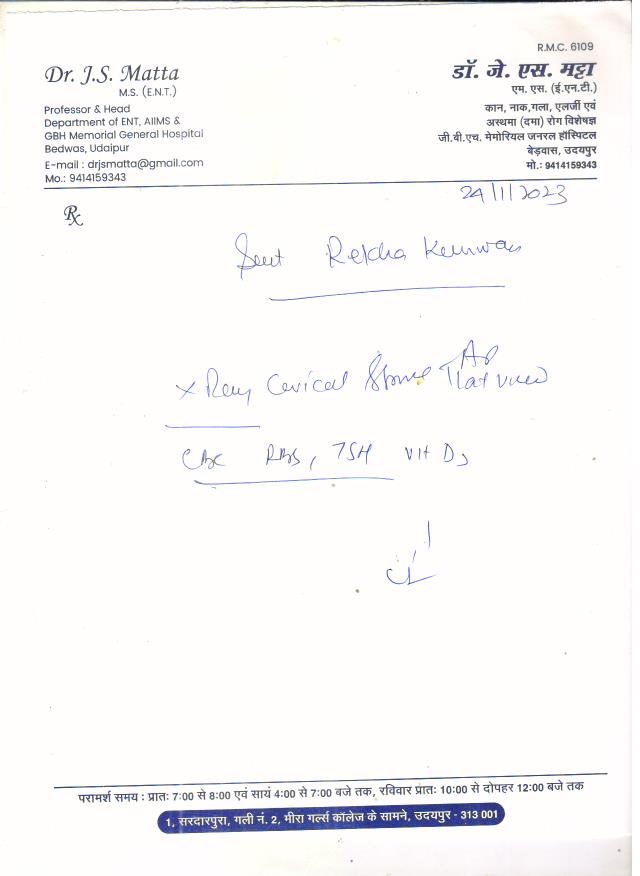 R.M.C. 6109
Dr. J.S. Matta
M.S. (E.N.T.)
Professor & Head
Department of ENT, AIIMS &
GBH Memorial General Hospital
Bedwas, Udaipur
E-mail : drjsmatta@gmail.com
Mo.: 9414159343
डॉ. जे. एस. मट्टा
एम. एस. (ई.एन.टी.)
कान, नाक,गला, एलर्जी एवं
अस्थमा (दमा) रोग विशेषज्ञ
जी.बी.एच. मेमोरियल जनरल हॉस्पिटल
बेड़वास, उदयपुर
मो.: 9414159343
24/1/2023
Rx
Smt Rekha Kunwar
X Ray Cervical Spine AP
Lat view
CBC RBS, TSH Vit D3
परामर्श समय : प्रातः 7:00 से 8:00 एवं सायं 4:00 से 7:00 बजे तक, रविवार प्रातः 10:00 से दोपहर 12:00 बजे तक
1, सरदारपुरा, गली नं. 2, मीरा गर्ल्स कॉलेज के सामने, उदयपुर - 313 001